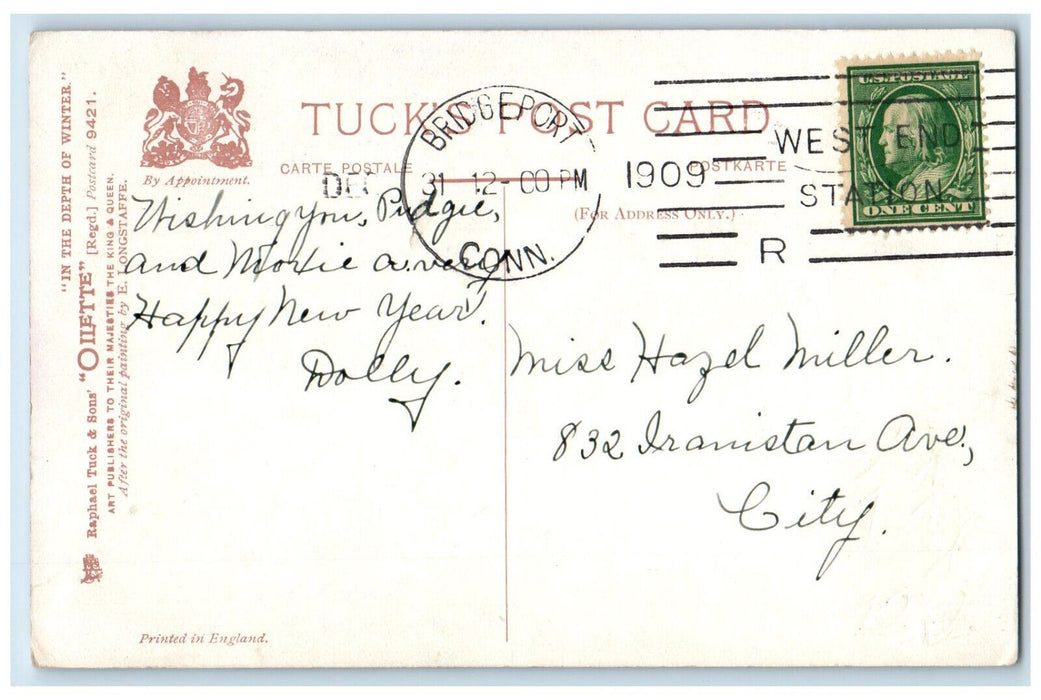 "IN THE DEPTH OF WINTER."
Raphael Tuck & Sons' "OILETTE" [Regd.] Postcard 9421.
ART PUBLISHERS TO THEIR MAJESTIES THE KING & QUEEN.
After the original painting by E. LONGSTAFFE.
By Appointment.
TUCK'S POST CARD
CARTE POSTALE
POSTKARTE
(FOR ADDRESS ONLY.)
BRIDGEPORT
DEC 31 12-00 PM 1909
CONN.
WEST END
STATION
R
U.S. POSTAGE
ONE CENT
Wishing you, Pudgie,
and Mortie a very
Happy New Year.
Dolly.
Miss Hazel Miller.
832 Iranistan Ave.,
City.
Printed in England.